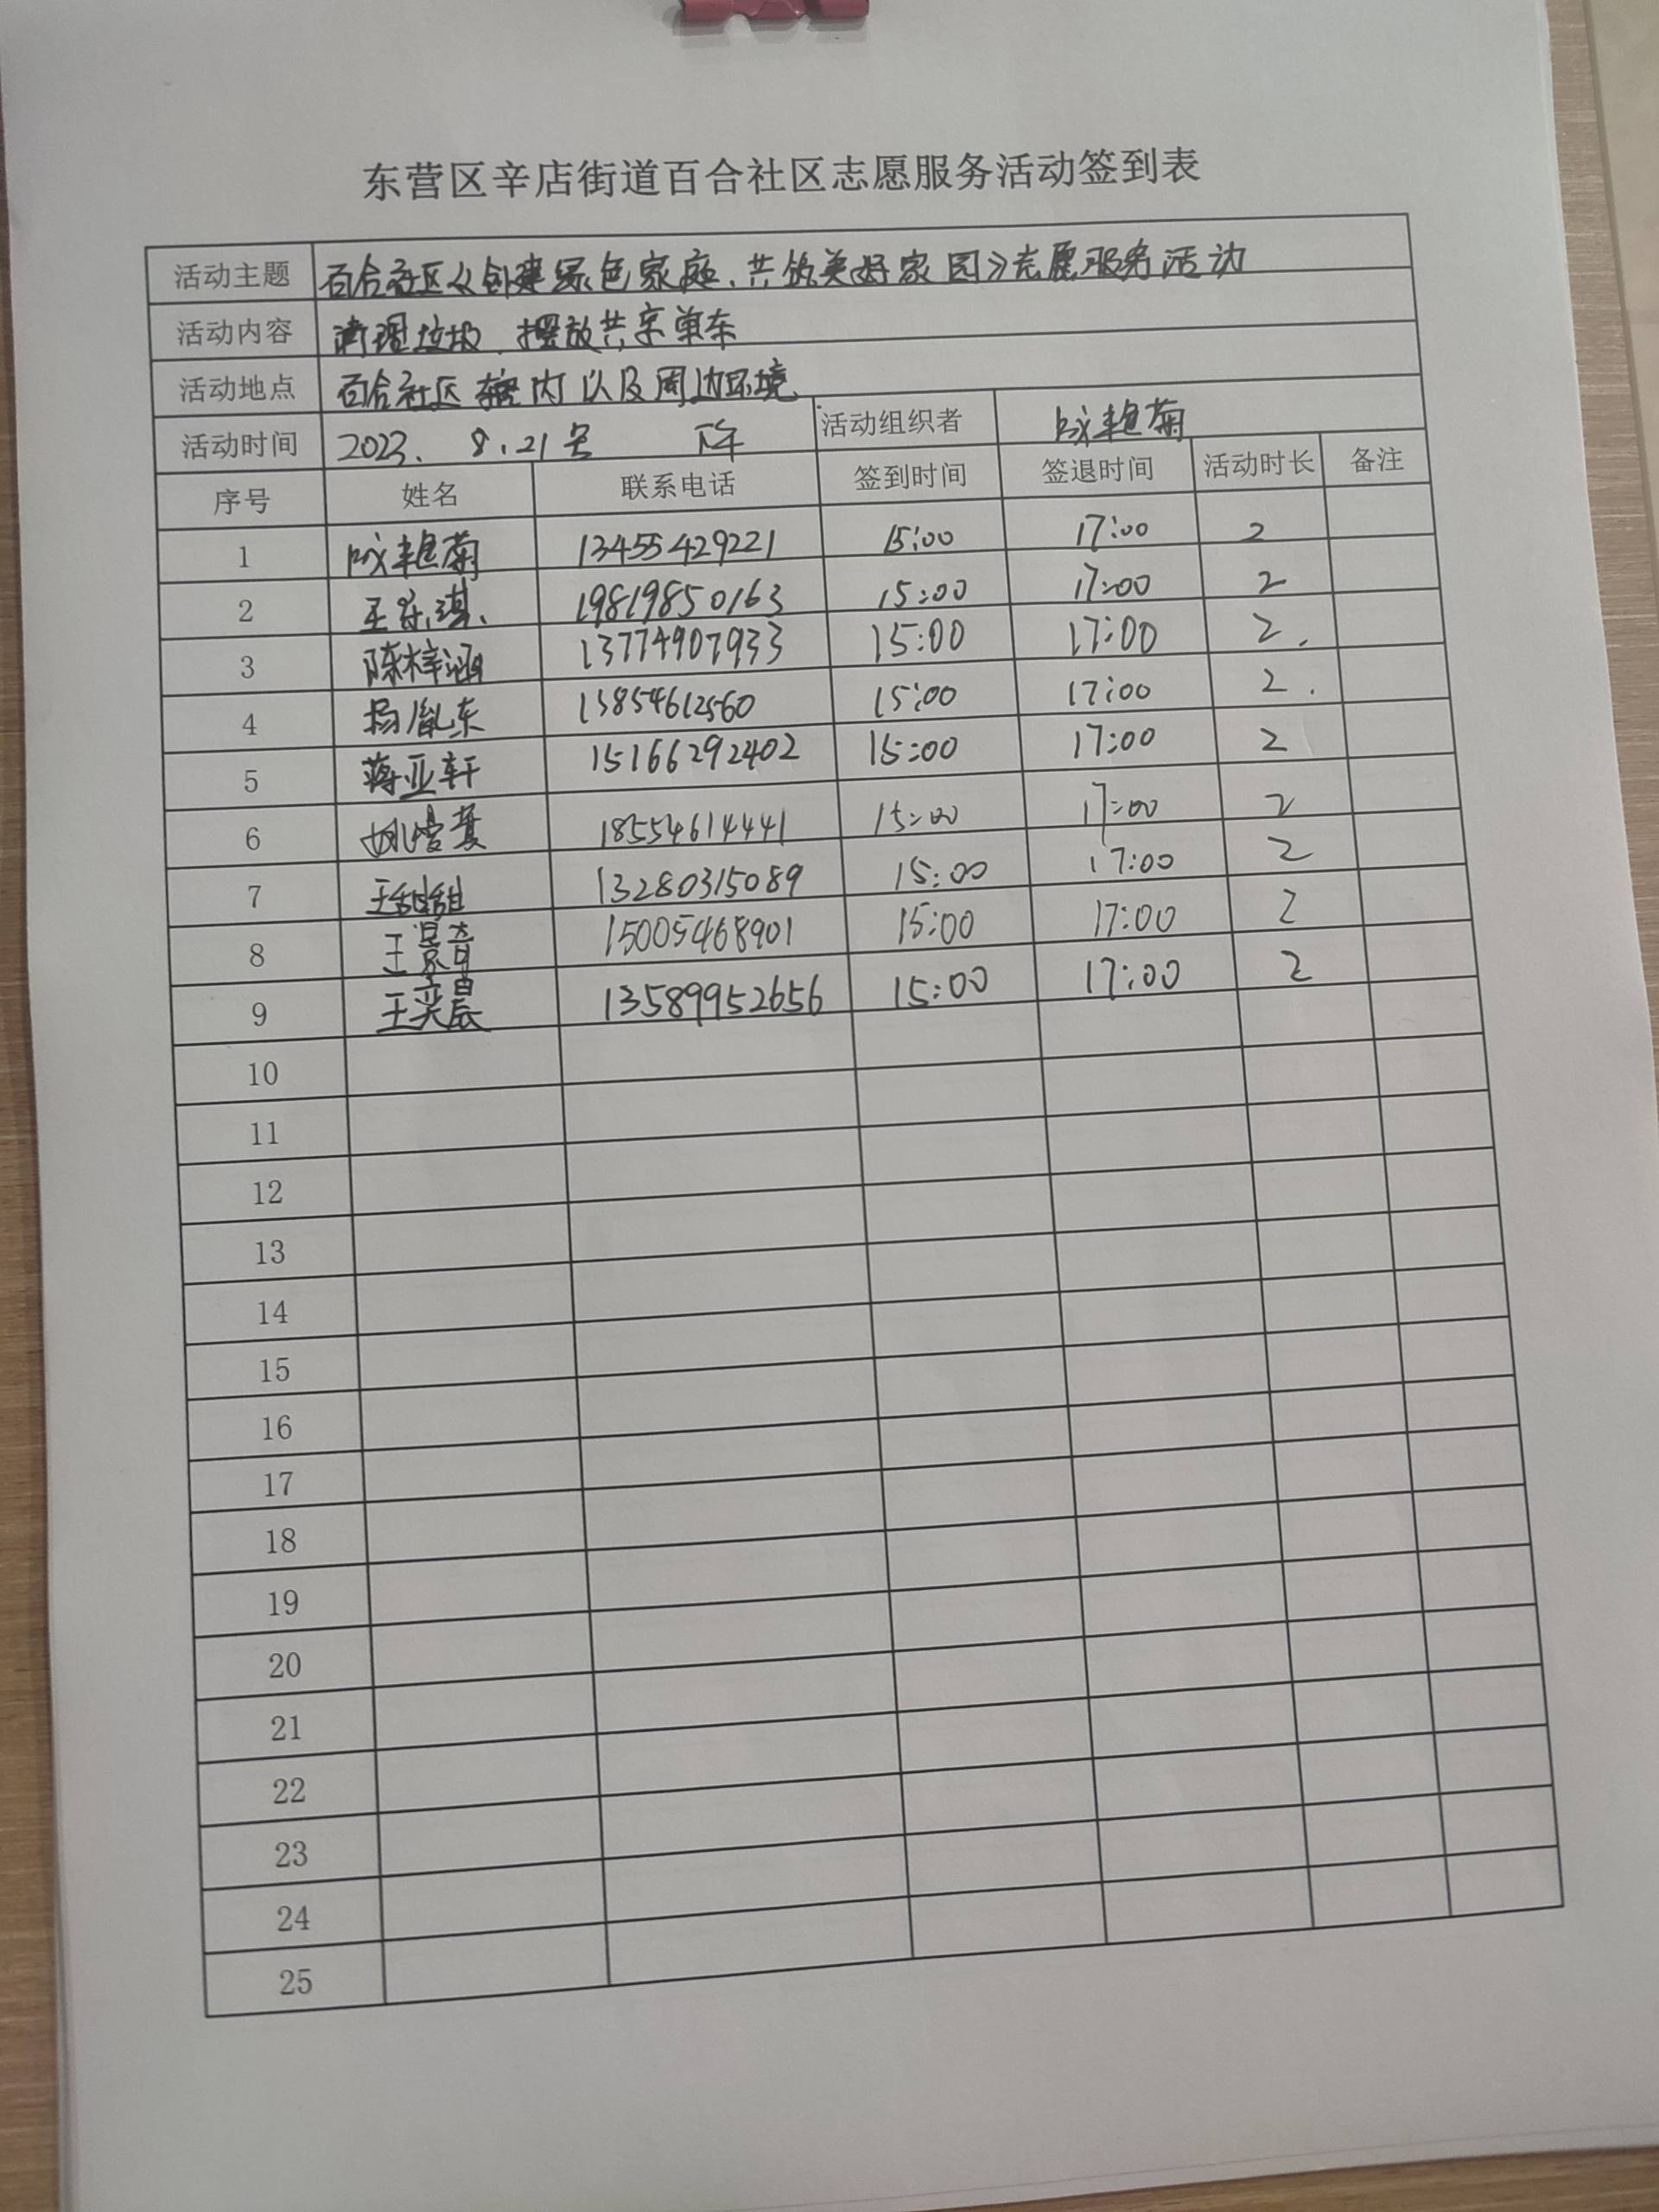 东营区辛店街道百合社区志愿服务活动签到表
活动主题 百合社区《创建绿色家庭、共筑美好家园》志愿服务活动
活动内容 清理垃圾、摆放共享单车
活动地点 百合社区辖内以及周边环境
活动时间 2023、8.21号 下午 活动组织者 艳菊
序号 姓名 联系电话 签到时间 签退时间 活动时长 备注
1 艳菊 13455429221 15:00 17:00 2
2 王 琪 19819850163 15:00 17:00 2
3 陈梓涵 13774907933 15:00 17:00 2.
4 杨胤东 13854612560 15:00 17:00 2.
5 蒋亚轩 15166292402 15:00 17:00 2
6 姚 18554614441 15:00 17:00 2
7 王甜甜 13280315089 15:00 17:00 2
8 王景奇 15005468901 15:00 17:00 2
9 王奕晨 13589952656 15:00 17:00 2
10
11
12
13
14
15
16
17
18
19
20
21
22
23
24
25